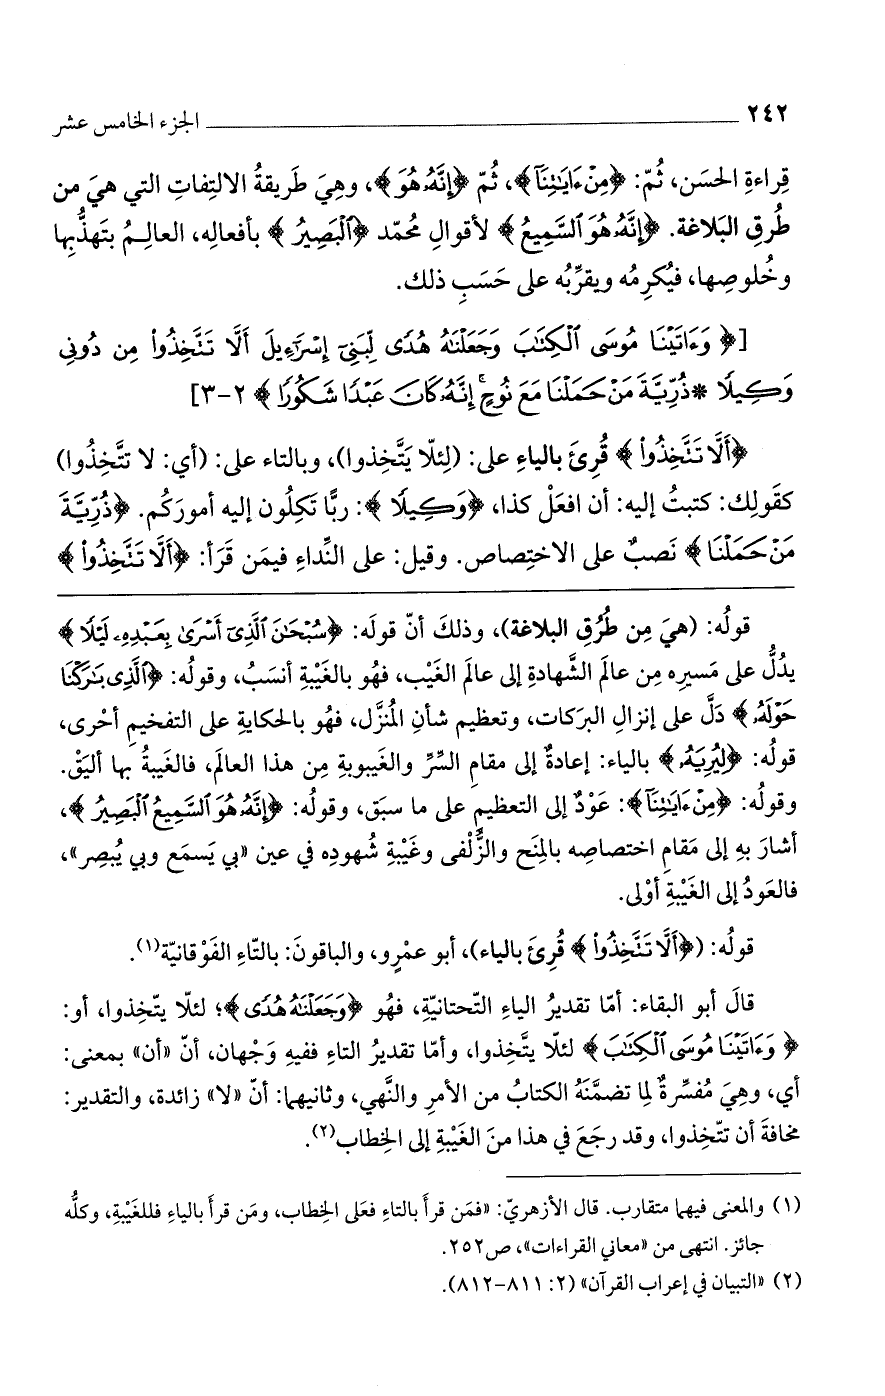 ٢٤٢ الجزء الخامس عشر
قِراءةِ الحسَن، ثُمّ: ﴿مِنْ ءَايَٰتِنَآ﴾، ثُمّ ﴿إِنَّهُۥ هُوَ﴾، وهِيَ طَريقةُ الالتِفاتِ التي هيَ من
طُرقِ البَلاغة. ﴿إِنَّهُۥ هُوَ ٱلسَّمِيعُ﴾ لأقوالِ محُمّد ﴿ٱلْبَصِيرُ﴾ بأفعالِه، العالِـمُ بتَهذُّبِها
وخُلوصِها، فيُكرِمُه ويقرِّبُه على حَسَبِ ذلك.
[﴿وَءَاتَيْنَا مُوسَى ٱلْكِتَٰبَ وَجَعَلْنَٰهُ هُدًى لِّبَنِىٓ إِسْرَٰٓءِيلَ أَلَّا تَتَّخِذُوا۟ مِن دُونِى
وَكِيلًا *ذُرِّيَّةَ مَنْ حَمَلْنَا مَعَ نُوحٍ ۚ إِنَّهُۥ كَانَ عَبْدًا شَكُورًا﴾ ٢-٣]
﴿أَلَّا تَتَّخِذُوا۟﴾ قُرِئَ بالياءِ على: (لِئلّا يَتَّخِذوا)، وبالتاء على: (أي: لا تتَّخِذُوا)
كقَولِك: كتبتُ إليه: أن افعَلْ كذا، ﴿وَكِيلًا﴾: ربًّا تَكِلُون إليه أمورَكُم. ﴿ذُرِّيَّةَ
مَنْ حَمَلْنَا﴾ نَصبٌ على الاختِصاص. وقيل: على النِّداءِ فيمَن قَرَأَ: ﴿أَلَّا تَتَّخِذُوا۟﴾
قولُه: (هيَ مِن طُرُقِ البلاغة)، وذلكَ أنّ قولَه: ﴿سُبْحَٰنَ ٱلَّذِىٓ أَسْرَىٰ بِعَبْدِهِۦ لَيْلًا﴾
يدُلُّ على مَسيرِه مِن عالمَ الشَّهادةِ إلى عالمَ الغَيْب، فهُو بالغَيْبةِ أنسَبُ، وقولُه: ﴿ٱلَّذِى بَٰرَكْنَا
حَوْلَهُۥ﴾ دَلَّ على إنزالِ البرَكات، وتعظيم شأنِ المُنزَّل، فهُو بالحكايةِ على التفخيمِ أحْرى،
قولُه: ﴿لِيُرِيَهُۥ﴾ بالياء: إعادةٌ إلى مقامِ السِّرِّ والغَيبوبةِ مِن هذا العالم، فالغَيبةُ بها أليَقْ.
وقولُه: ﴿مِنْ ءَايَٰتِنَآ﴾: عَوْدٌ إلى التعظيمِ على ما سبَق، وقولُه: ﴿إِنَّهُۥ هُوَ ٱلسَّمِيعُ ٱلْبَصِيرُ﴾،
أشارَ بهِ إلى مَقامِ اختصاصِه بالمِنَح والزُّلْفى وغَيْبةِ شُهودِه في عين «بي يَسمَع وبي يُبصِر»،
فالعَودُ إلى الغَيْبةِ أَوْلى.
قولُه: (﴿أَلَّا تَتَّخِذُوا۟﴾ قُرِئَ بالياء)، أبو عمْرٍو، والباقونَ: بالتّاءِ الفَوْقانيّة(١).
قالَ أبو البقاء: أمّا تقديرُ الياءِ التّحتانيّةِ، فهُو ﴿وَجَعَلْنَٰهُ هُدًى﴾؛ لئلّا يتّخِذوا، أو:
﴿وَءَاتَيْنَا مُوسَى ٱلْكِتَٰبَ﴾ لئلّا يتَّخِذوا، وأمّا تقديرُ التاءِ ففيهِ وَجْهان، أنّ «أن» بمعنى:
أي، وهِيَ مُفسِّرةٌ لِما تضمَّنَهُ الكتابُ من الأمرِ والنَّهي، وثانيهما: أنّ «لا» زائدة، والتقدير:
مخافةَ أن تتّخِذوا، وقد رجَعَ في هذا منَ الغَيْبةِ إلى الخِطاب(٢).
(١) والمعنى فيهما متقارب. قال الأزهريّ: «فمَن قرأَ بالتاء فعَلى الخِطاب، ومَن قرأَ بالياءِ فللغَيْبةِ، وكلُّه
جائز. انتهى من «معاني القراءات»، ص٢٥٢.
(٢) «التبيان في إعراب القرآن» (٢: ٨١١-٨١٢).